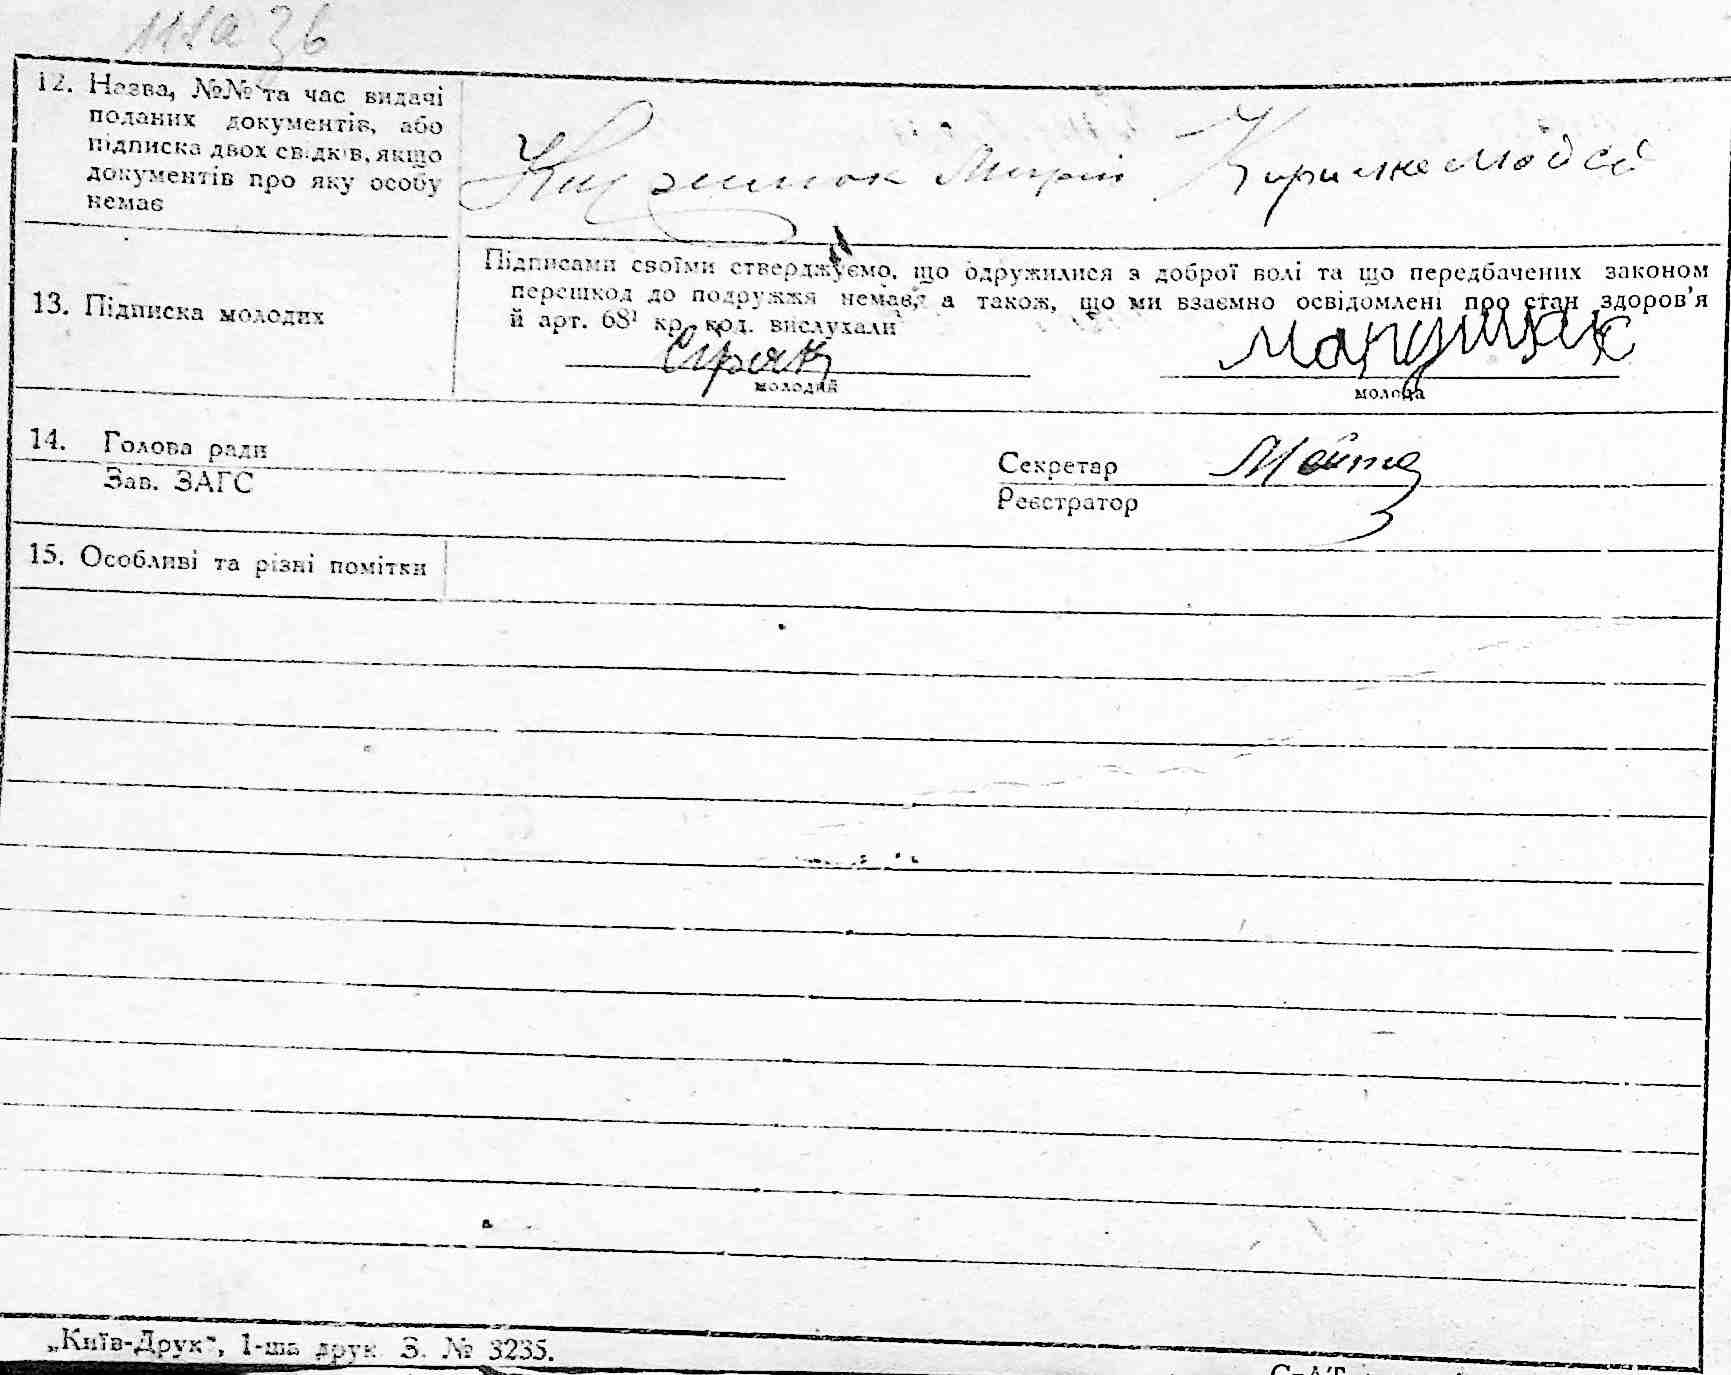 12. Назва, №№ та час видачі
поданих документів, або
підписка двох свідків, якщо
документів про яку особу
немає
13. Підписка молодих
Підписами своїми стверджуємо, що одружилися з доброї волі та що передбачених законом
перешкод до подружжя немає, а також, що ми взаємно освідомлені про стан здоров'я
й арт. 68¹ кр. код. вислухали
Сірак
молодий
молода
14. Голова ради
Зав. ЗАГС
Секретар
Реєстратор
15. Особливі та різні помітки
„Київ-Друк", 1-ша друк. З. № 3235.